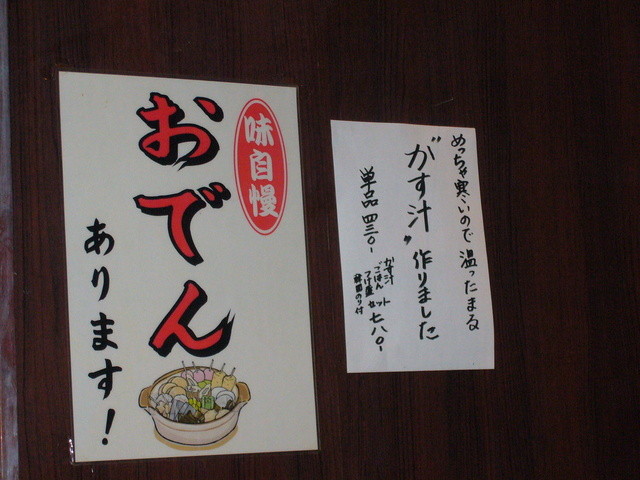 味自慢
おでん
あります!
めっちゃ寒いので 温ったまる
"かす汁" 作りました
単品 四三〇-
かす汁
ごはん
つけ物
味間のり付
セット 七八〇-